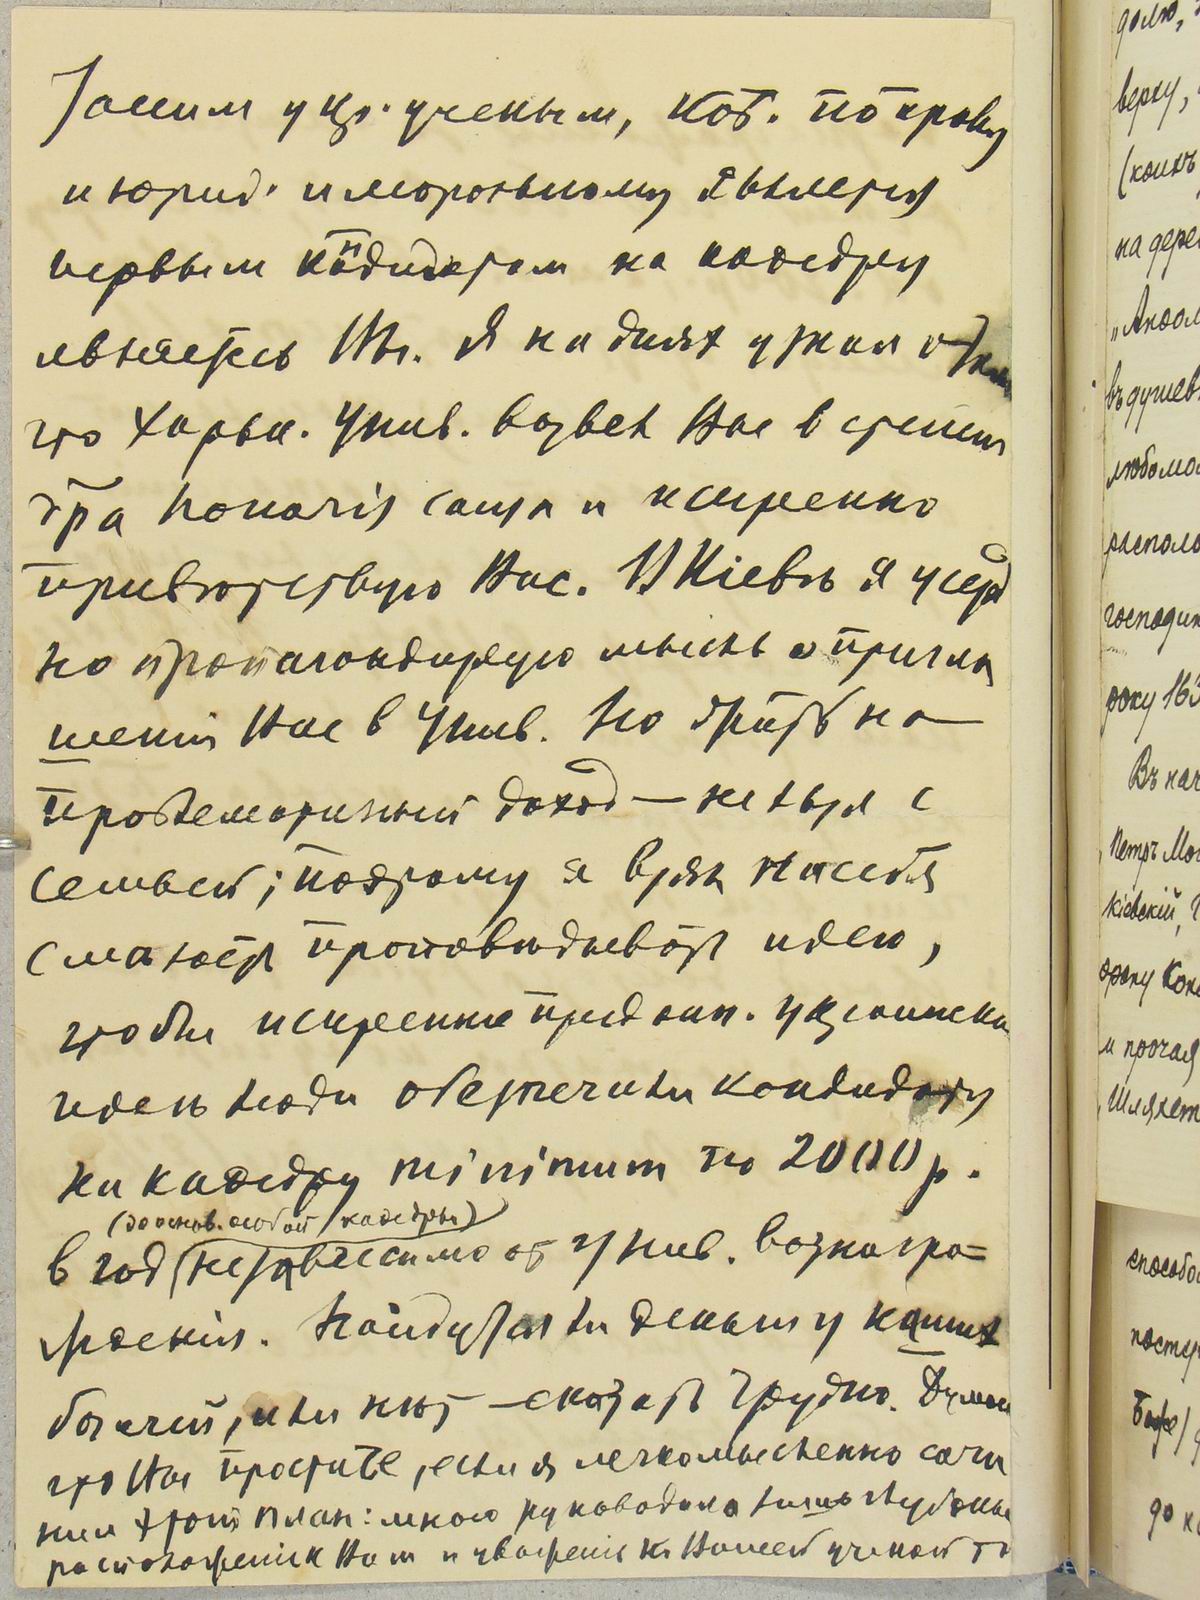 Таким укр. ученым, кот. по праву
и юрид. и моральному является
первым кандидатом на кафедру
являетесь Вы. Я на днях узнал о том
что Харьк. Унив. возвел Вас в степень
д-ра honoris causa и искренно
приветствую Вас. В Кіевѣ я усерд
но пропагандирую мысль о пригла
шеніи Вас в Унив. Но ѣхать на
проблематичный доход — нельзя с
семьей; поэтому я взял на себя
смѣлость проповѣдывать идею,
чтобы искренно преданн. украинской
идеѣ люди обезпечили кандидату
на кафедру minimum по 2000 р.
(до основ. особой кафедры)
в год (независимо от унив. вознагра=
жденія. Найдутся ли деньги у наших
богачей, или нѣт — сказать трудно. Думаю
что Вы простите, если я легкомысленно сочи
нил этот план: мною руководило лишь глубокое
расположеніе к Вам и уваженіе к Вашей ученой
долю,
верху,
(коихъ
на дере
„Апол
въ душев
любомо
располо
господин
року 163
Въ нач
Петръ Мо
кіевскій,
и прочая
Шляхет
способо
посту
до к